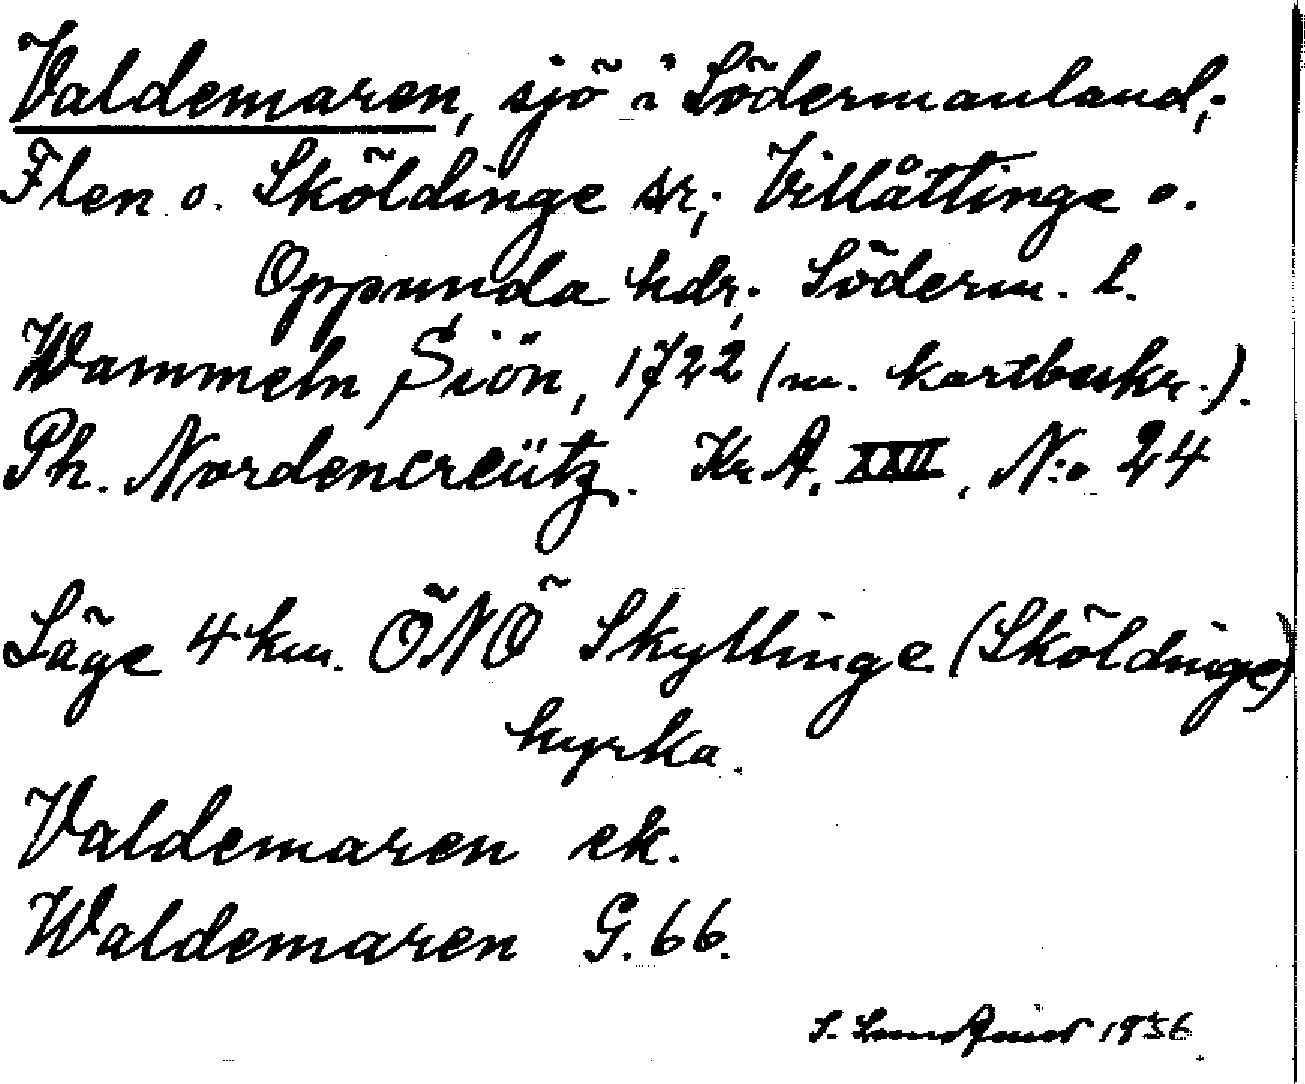 Valdemaren, sjö i Södermanland;
Flen o. Sköldinge snr; Villåttinge o.
Oppunda hdr; Söderm. l.
Wammeln Siön, 1722 (m. kartbeskr.).
Ph. Nordencreütz. Kr.A. XXII, N:o 24
Läge 4 km. ÖNÖ Skyllinge (Sköldinge)
kyrka.
Valdemaren ek.
Waldemaren G. 66.
S. Lundquist 1956